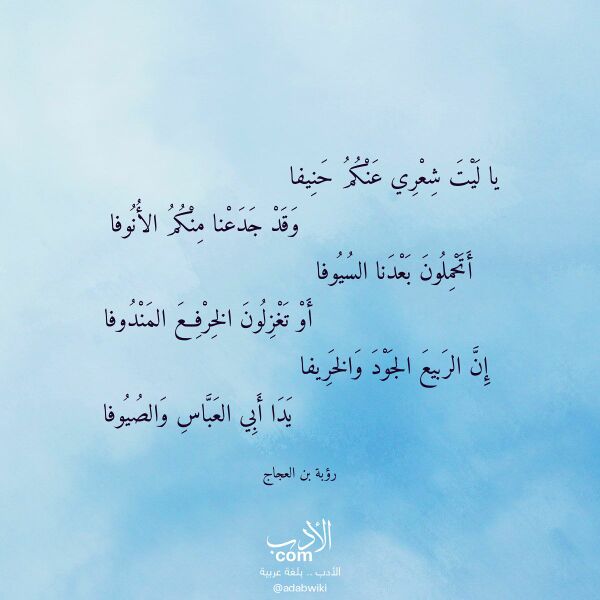 يا لَيْتَ شِعْرِي عَنْكُمُ حَنِيفا
وَقَدْ جَدَعْنا مِنْكُمُ الأُنُوفا
أَتَحْمِلُونَ بَعْدَنا السُيُوفا
أَوْ تَغْزِلُونَ الخِرْفِعَ المَنْدُوفا
إِنَّ الرَبِيعَ الجَوْدَ وَالخَرِيفا
يَدَا أَبِي العَبَّاسِ وَالصُيُوفا
رؤبة بن العجاج
الأدب
com
الأدب .. بلغة عربية
@adabwiki